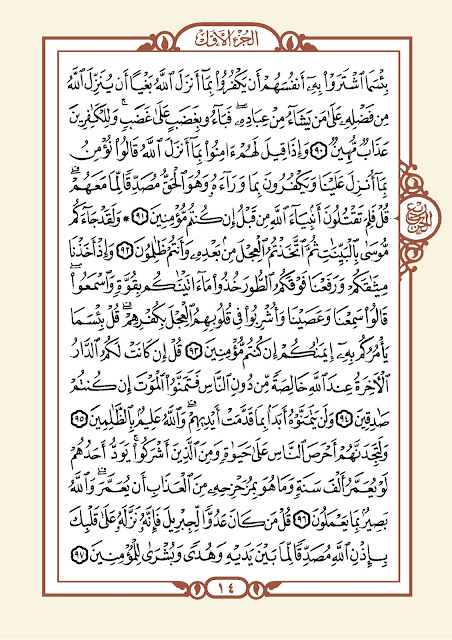 الجزء الأول
بِئْسَمَا اَشْتَرَوْاْ بِهِۦٓ أَنفُسَهُمْ أَن يَكْفُرُواْ بِمَآ أَنزَلَ اَللَّهُ بَغْياً أَن يُنَزِّلَ اَللَّهُ
مِن فَضْلِهِۦ عَلَىٰ مَن يَشَآءُ مِنْ عِبَادِهِۦۖ فَبَآءُو بِغَضَبٍ عَلَىٰ غَضَبٍۚ وَلِلْكَٰفِرِينَ
عَذَابٌ مُّهِينٌ ٩٠ وَإِذَا قِيلَ لَهُمْ ءَامِنُواْ بِمَآ أَنزَلَ اَللَّهُ قَالُواْ نُؤْمِنُ
بِمَآ أُنزِلَ عَلَيْنَا وَيَكْفُرُونَ بِمَا وَرَآءَهُۥ وَهُوَ اَلْحَقُّ مُصَدِّقاً لِّمَا مَعَهُمْۖ
قُلْ فَلِمَ تَقْتُلُونَ أَنۢبِيَآءَ اَللَّهِ مِن قَبْلُ إِن كُنتُم مُّؤْمِنِينَ ٩١ * وَلَقَدْ جَآءَكُم
مُّوسَىٰ بِالْبَيِّنَٰتِ ثُمَّ اَتَّخَذتُّمُ اَلْعِجْلَ مِنۢ بَعْدِهِۦ وَأَنتُمْ ظَٰلِمُونَ ٩٢ وَإِذْ أَخَذْنَا
مِيثَٰقَكُمْ وَرَفَعْنَا فَوْقَكُمُ اُلطُّورَ خُذُواْ مَآ ءَاتَيْنَٰكُم بِقُوَّةٍ وَاسْمَعُواْۖ
قَالُواْ سَمِعْنَا وَعَصَيْنَا وَأُشْرِبُواْ فِي قُلُوبِهِمُ اُلْعِجْلَ بِكُفْرِهِمْۖ قُلْ بِئْسَمَا
يَأْمُرُكُم بِهِۦٓ إِيمَٰنُكُمْ إِن كُنتُم مُّؤْمِنِينَ ٩٣ قُلْ إِن كَانَتْ لَكُمُ اُلدَّارُ
اُلْأٓخِرَةُ عِندَ اَللَّهِ خَالِصَةً مِّن دُونِ اِلنَّاسِ فَتَمَنَّوُاْ اُلْمَوْتَ إِن كُنتُمْ
صَٰدِقِينَ ٩٤ وَلَن يَتَمَنَّوْهُ أَبَداً بِمَا قَدَّمَتْ أَيْدِيهِمْۖ وَاللَّهُ عَلِيمٌۢ بِالظَّٰلِمِينَ ٩٥
وَلَتَجِدَنَّهُمْ أَحْرَصَ اَلنَّاسِ عَلَىٰ حَيَوٰةٍ وَمِنَ اَلَّذِينَ أَشْرَكُواْۚ يَوَدُّ أَحَدُهُمْ
لَوْ يُعَمَّرُ أَلْفَ سَنَةٍ وَمَا هُوَ بِمُزَحْزِحِهِۦ مِنَ اَلْعَذَابِ أَن يُعَمَّرَۖ وَاللَّهُ
بَصِيرٌۢ بِمَا يَعْمَلُونَ ٩٦ قُلْ مَن كَانَ عَدُوّاً لِّجِبْرِيلَ فَإِنَّهُۥ نَزَّلَهُۥ عَلَىٰ قَلْبِكَ
بِإِذْنِ اِللَّهِ مُصَدِّقاً لِّمَا بَيْنَ يَدَيْهِ وَهُدىً وَبُشْرَىٰ لِلْمُؤْمِنِينَ ٩٧
١٤